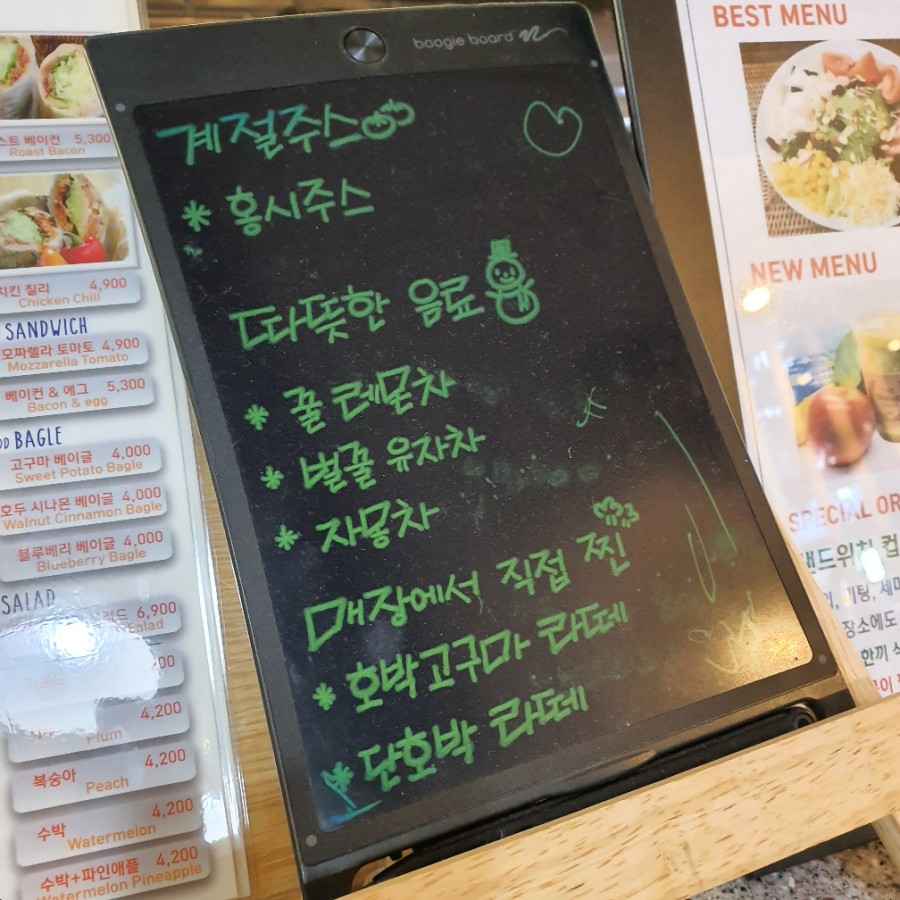 boogie board
계절주스
* 홍시주스
따뜻한 음료
* 꿀 레몬차
* 벌꿀 유자차
* 자몽차
매장에서 직접 찐
* 호박고구마 라떼
* 단호박 라떼
베이컨 5,300
Roast Bacon
치킨 칠리 4,900
Chicken Chili
SANDWICH
모짜렐라 토마토 4,900
Mozzarella Tomato
베이컨 & 에그 5,300
Bacon & egg
BAGLE
고구마 베이글 4,000
Sweet Potato Bagle
호두 시나몬 베이글 4,000
Walnut Cinnamon Bagle
블루베리 베이글 4,000
Blueberry Bagle
SALAD
6,900
4,200
Plum
복숭아 4,200
Peach
수박 4,200
Watermelon
수박+파인애플 4,200
Watermelon Pineapple
BEST MENU
NEW MENU
SPECIAL
장소에도
한끼